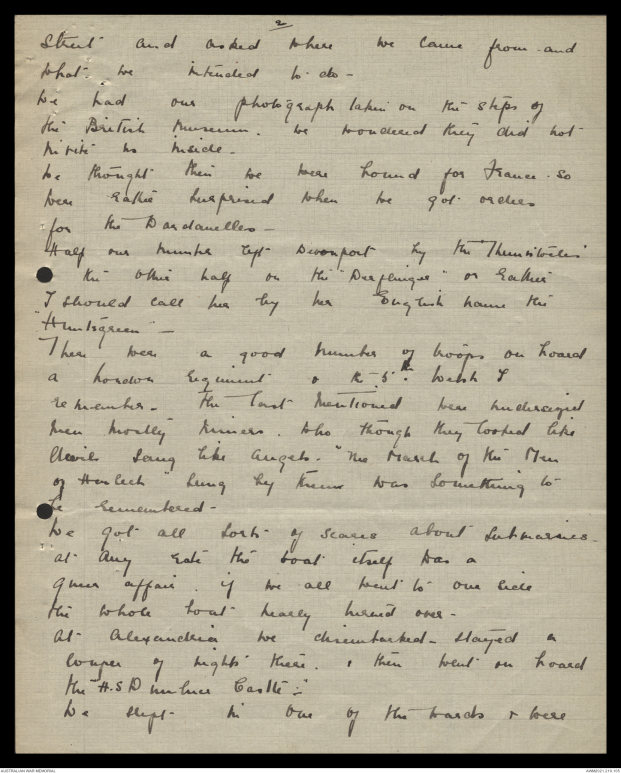 2
Street and asked where we came from and
what we intended to do -
We had our photograph taken on the steps of
the British Museum. We wondered they did not
invite us inside.
We thought then we were bound for France. So
were rather surprised when we got orders
for the Dardanelles -
Half our number left Devonport by the "Themistocles"
& the other half on the "Derflinger" or rather
I should call her by her English name the
"Huntsgreen" -
There were a good number of troops on board
a London regiment & the 5th Welsh I
remember. The last mentioned were undersized
men mostly miners. Who though they looked like
devils sang like angels. "The March of the Men
of Harlech" sung by them was something to
be remembered -
We got all sorts of scares about Submarines -
at any rate the boat itself was a
queer affair. if we all went to one side
the whole boat nearly turned over -
At Alexandria we disembarked - stayed a
couple of nights there. & then went on board
the "H.S Dunluce Castle".
We slept in one of the wards & were
AUSTRALIAN WAR MEMORIAL